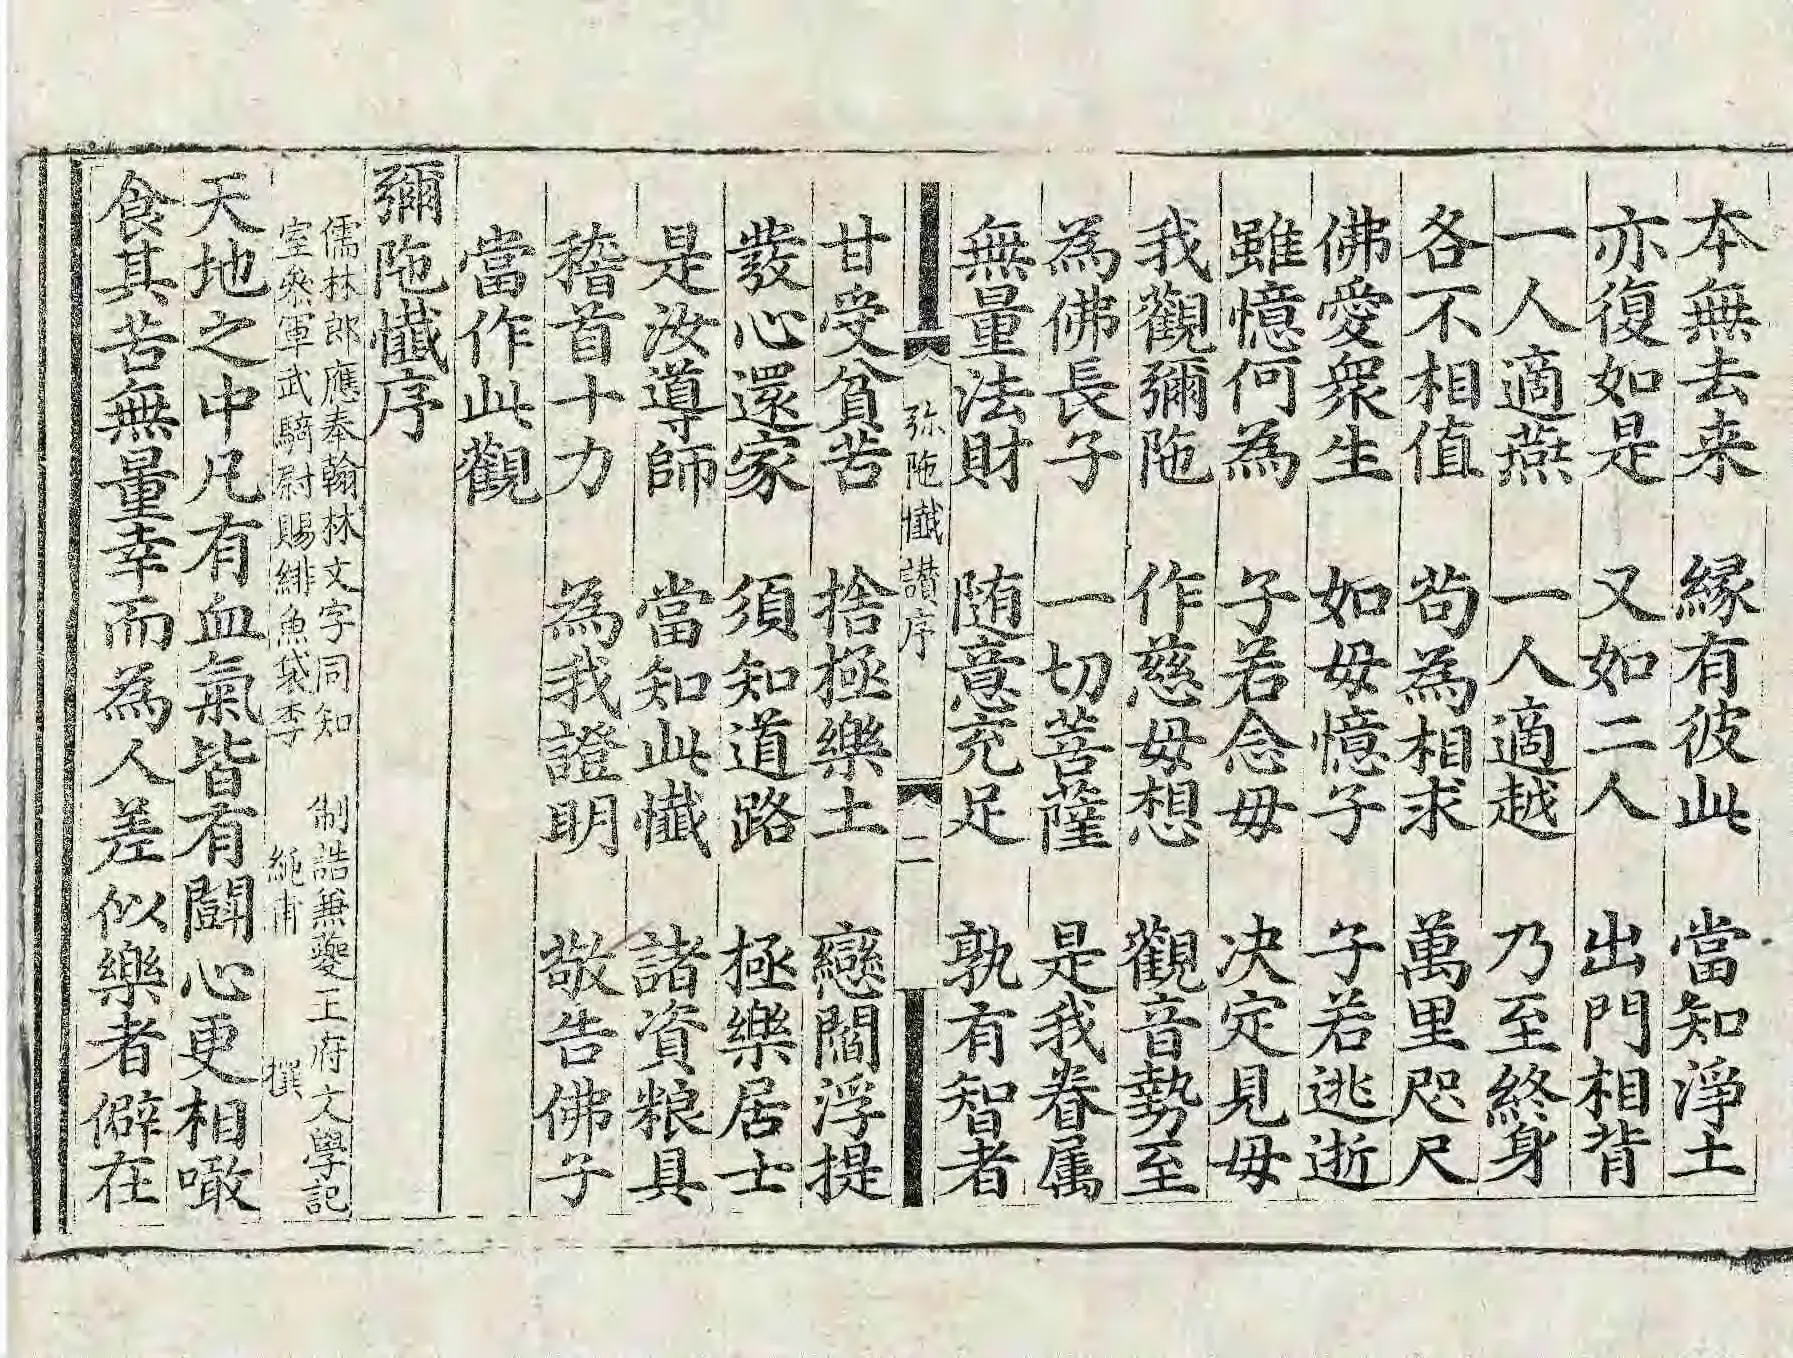 本無去来　緣有彼此　當知淨土
亦復如是　又如二人　出門相背
一人適燕　一人適越　乃至終身
各不相值　茍為相求　萬里咫尺
佛愛衆生　如母憶子　子若逃逝
雖憶何為　子若念母　决定見母
我觀彌陁　作慈母想　觀音勢至
為佛長子　一切菩薩　是我眷属
無量法財　随意充足　孰有智者
弥陁懴讃序　二
甘受貧苦　捨極樂土　戀閻浮提
發心還家　須知道路　極樂居士
是汝導師　當知此懴　諸資粮具
稽首十力　為我證明　敬告佛子
當作此觀
彌陁懴序
儒林郎應奉翰林文字同知　制誥兼夔王府文學記
室叅軍武騎尉賜緋魚袋李　純甫　撰
天地之中凡有血氣皆有鬪心更相噉
食其苦無量幸而為人差似樂者僻在